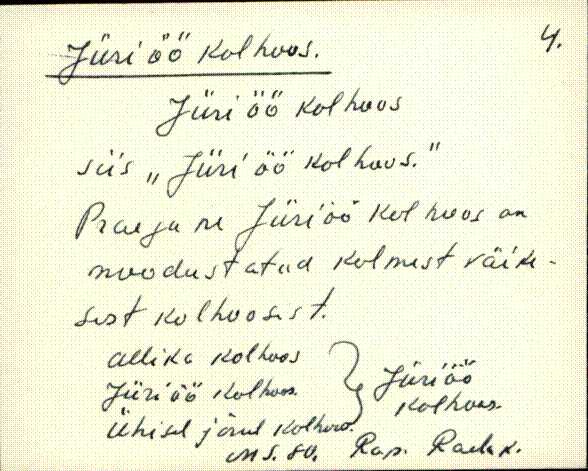 4.
Jüriöö kolhoos.
Jüriöö kolhoos
siis „Jüriöö kolhoos."
Praegune Jüriöö kolhoos on
moodustatud kolmest väike-
sest kolhoosist.
Allika kolhoos
Jüriöö kolhoos.
Ühisel jõul kolhoos.
Jüriöö
kolhoos.